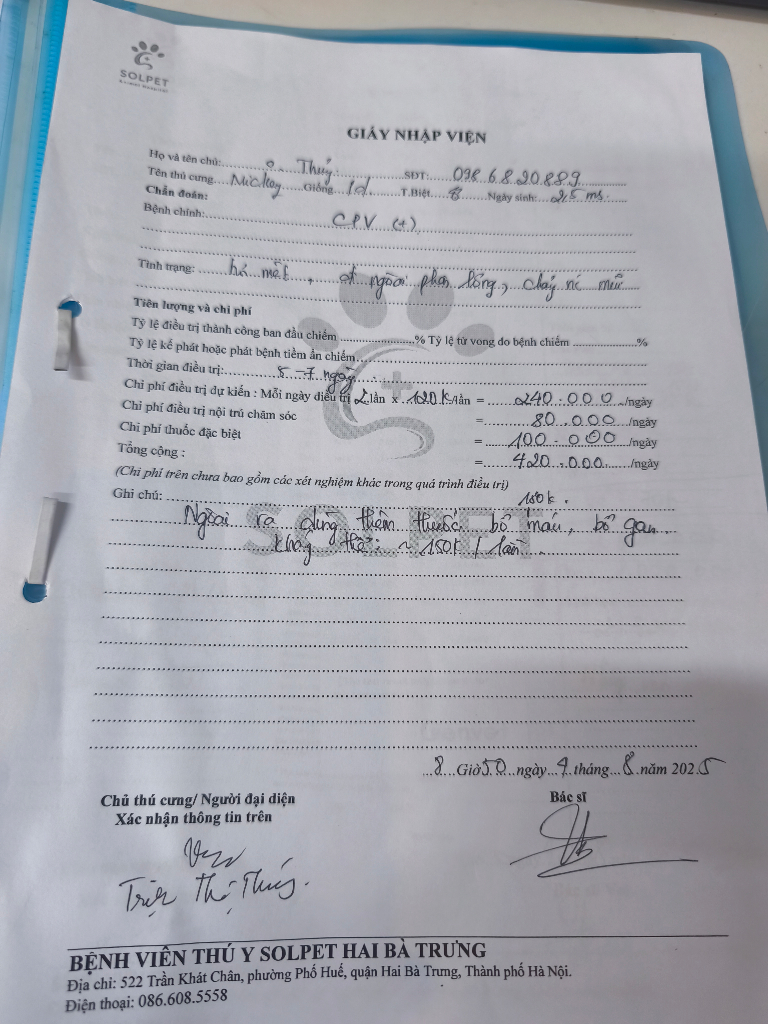 SOLPET
Animal Hospital
GIẤY NHẬP VIỆN
Họ và tên chủ: Thúy SĐT: 098.6.820889
Tên thú cưng Mickey Giống T.Biệt Ngày sinh: 2,5 ms
Chẩn đoán:
Bệnh chính: CPV (+)
Tình trạng: há mệt, ngoài phân lỏng, chảy mũi
Tiên lượng và chi phí
Tỷ lệ điều trị thành công ban đầu chiếm % Tỷ lệ tử vong do bệnh chiếm %
Tỷ lệ kế phát hoặc phát bệnh tiềm ẩn chiếm
Thời gian điều trị: 5 - 7 ngày
Chi phí điều trị dự kiến : Mỗi ngày điều trị 2 lần x 120k /lần = 240.000 /ngày
Chi phí điều trị nội trú chăm sóc = 80.000 /ngày
Chi phí thuốc đặc biệt = 100.000 /ngày
Tổng cộng : = 420.000 /ngày
(Chi phí trên chưa bao gồm các xét nghiệm khác trong quá trình điều trị)
Ghi chú: 150k.
Ngoài ra dùng thêm thuốc bổ máu, bổ gan
kháng thể: ~ 150k / lần.
SOLPET
8 Giờ 50 ngày 7 tháng 8 năm 2025
Chủ thú cưng/ Người đại diện Bác sĩ
Xác nhận thông tin trên
Thị Thúy.
BỆNH VIỆN THÚ Y SOLPET HAI BÀ TRƯNG
Địa chỉ: 522 Trần Khát Chân, phường Phố Huế, quận Hai Bà Trưng, Thành phố Hà Nội.
Điện thoại: 086.608.5558